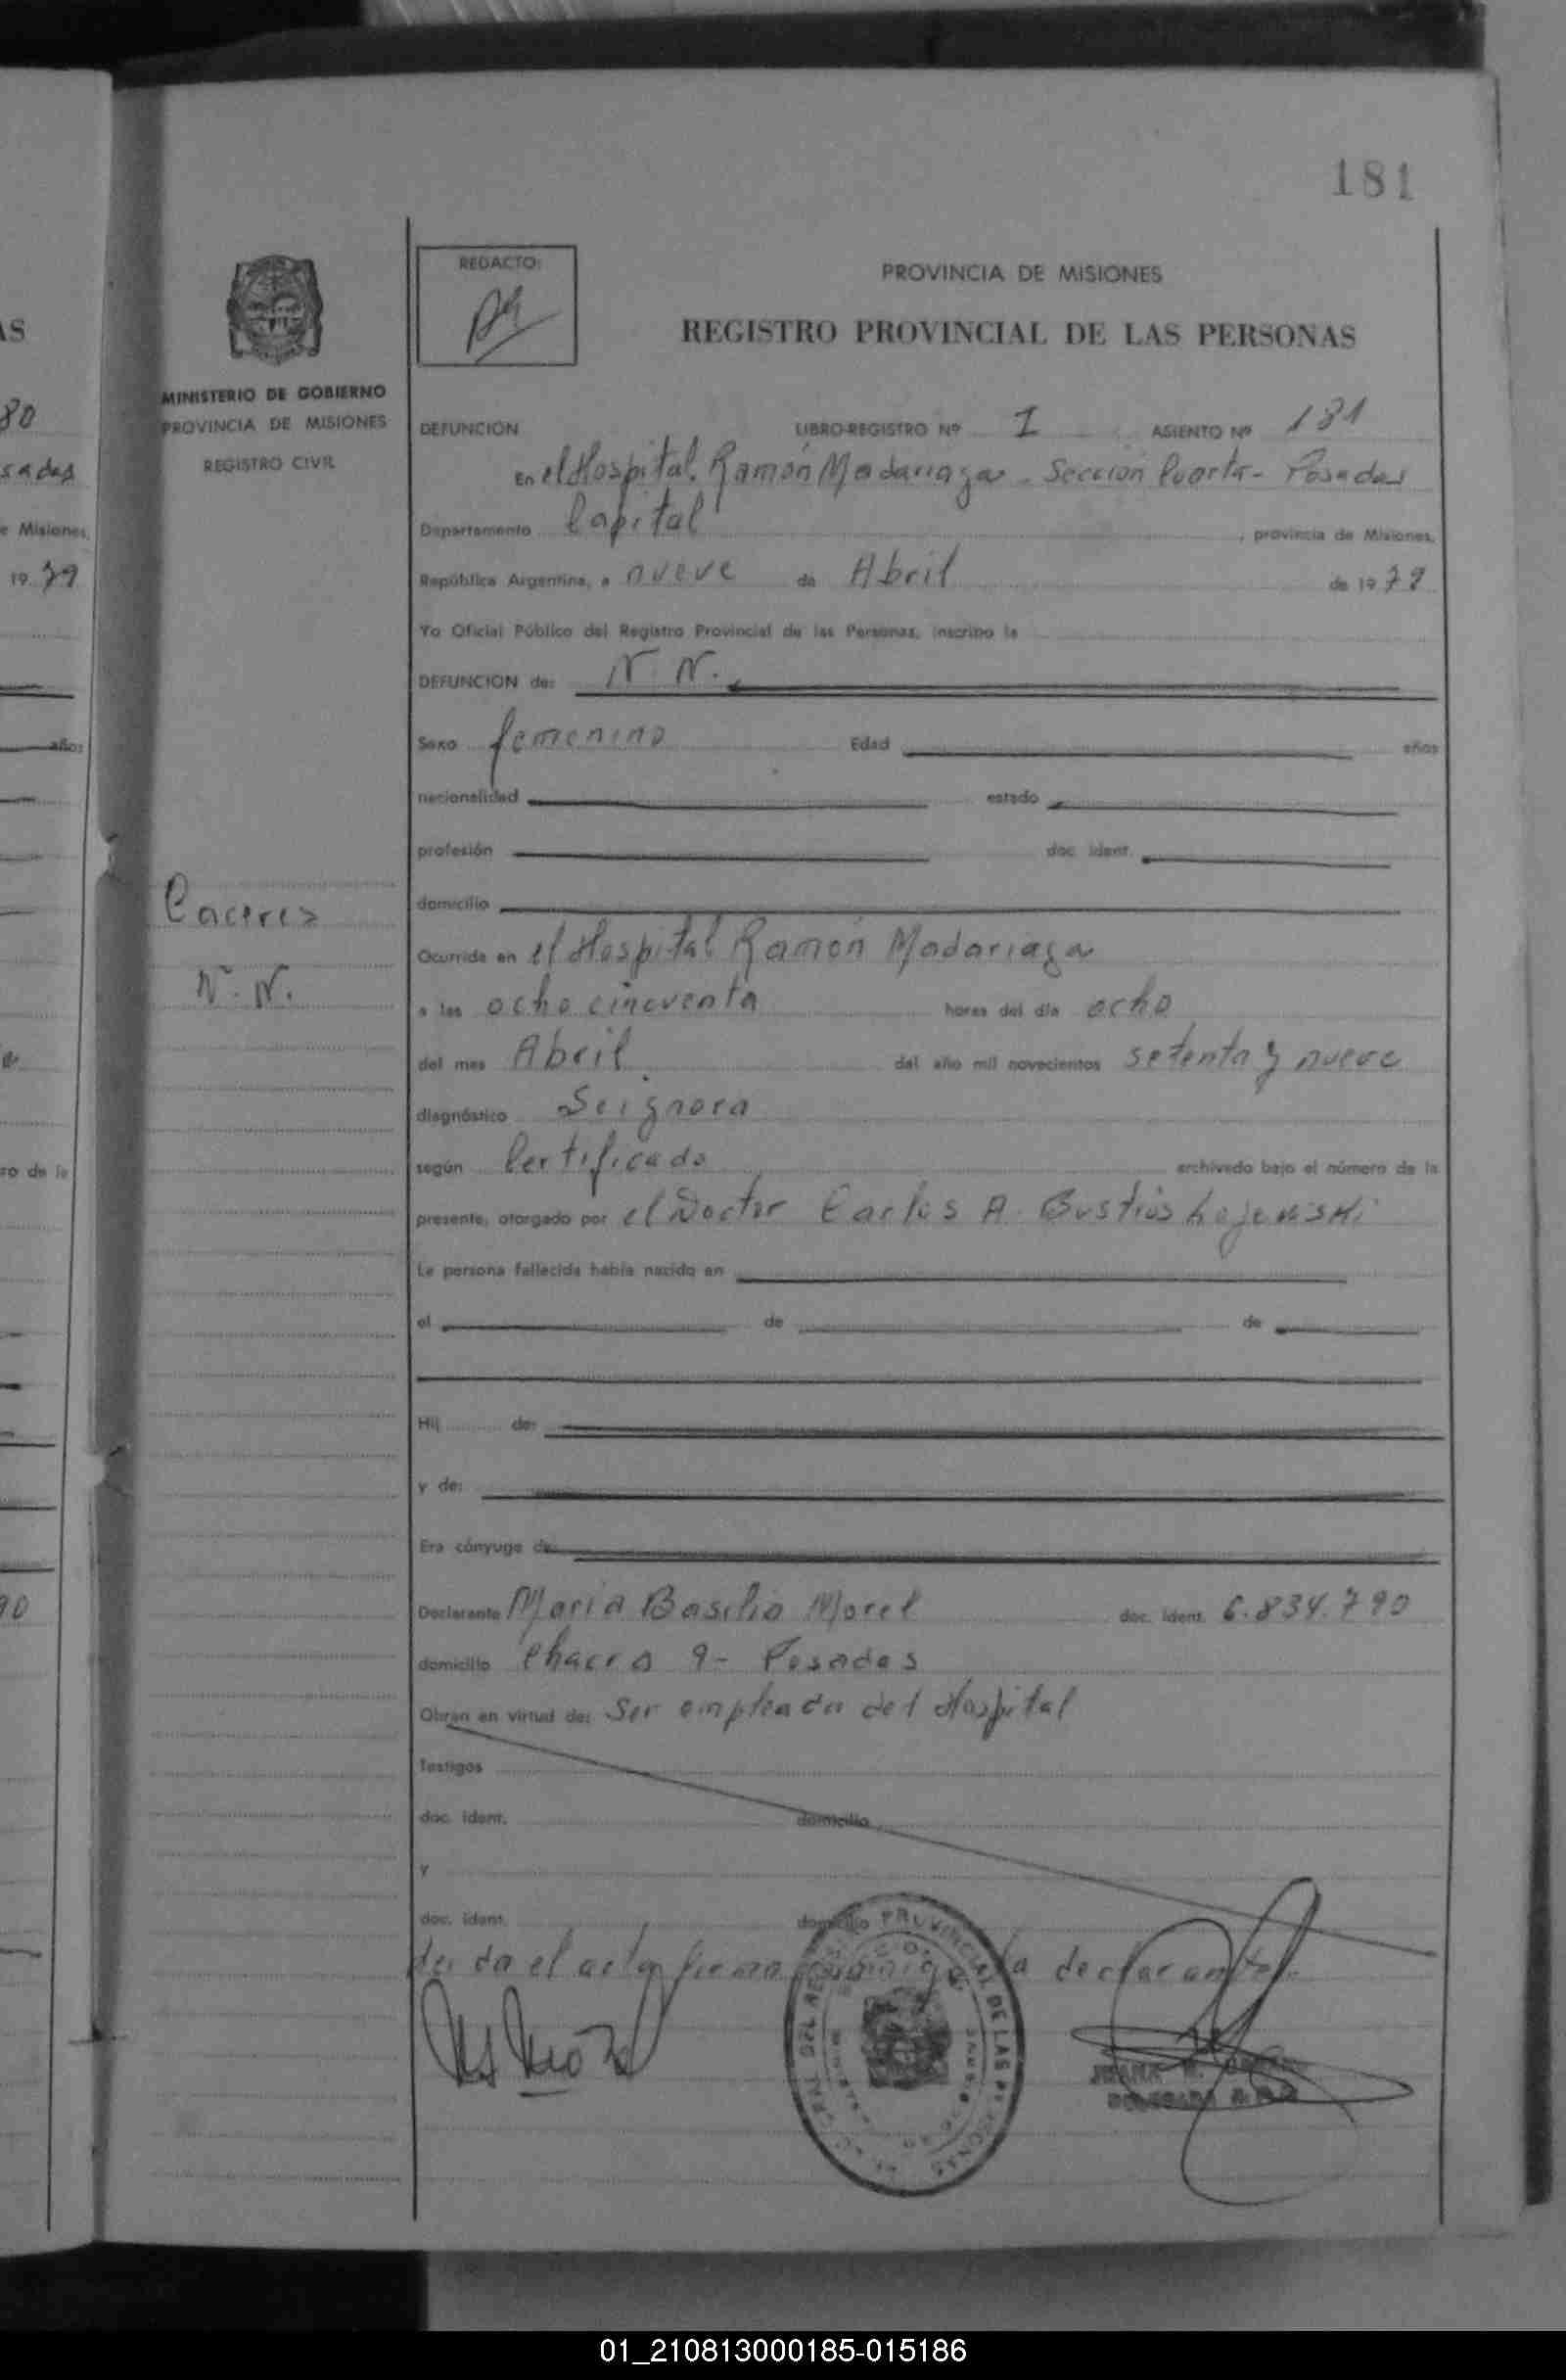 181
AS
80
sadas
e Misiones,
19 79
años
ro de la
90
MINISTERIO DE GOBIERNO
PROVINCIA DE MISIONES
REGISTRO CIVIL
Caceres
N. N.
REDACTO:
PROVINCIA DE MISIONES
REGISTRO PROVINCIAL DE LAS PERSONAS
DEFUNCION LIBRO-REGISTRO Nº I ASIENTO Nº 181
En el Hospital Ramón Madariaga - Sección Cuarta - Posadas
Departamento Capital, provincia de Misiones,
República Argentina, a nueve de Abril de 1979
Yo Oficial Público del Registro Provincial de las Personas, inscribo la
DEFUNCION de: N. N.
Sexo femenino Edad años
nacionalidad estado
profesión doc. ident.
domicilio
Ocurrida en el Hospital Ramón Madariaga
a las ocho cincuenta horas del día ocho
del mes Abril del año mil novecientos setenta y nueve
diagnóstico Se ignora
según Certificado archivado bajo el número de la
presente, otorgado por el Doctor Carlos A. Bustios
La persona fallecida había nacido en
el de de
Hij de:
y de:
Era cónyuge de:
Declarante Maria Basilia Morel doc. ident. 6.834.790
domicilio Chacra 9 - Posadas
Obran en virtud de: Ser empleada del Hospital
Testigos
doc. ident. domicilio
y
doc. ident. domicilio
Leída el acta firma conmigo la declarante.
PROVINCIAL DE LAS PERSONAS
01_210813000185-015186